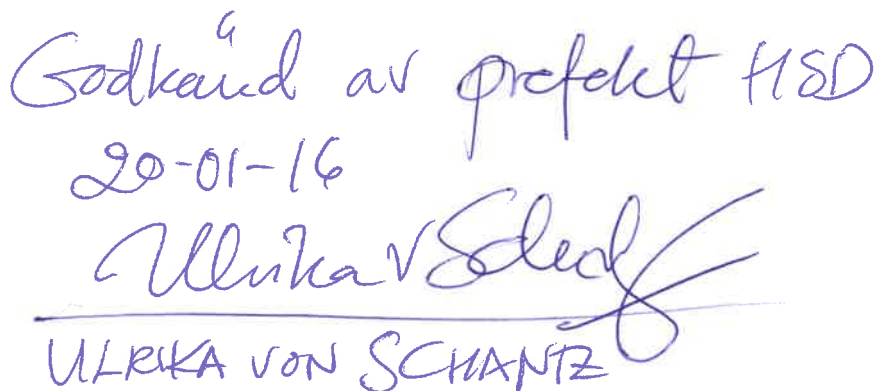 Godkänd av prefekt HSD
20-01-16
Ulrika v Schantz
ULRIKA VON SCHANTZ